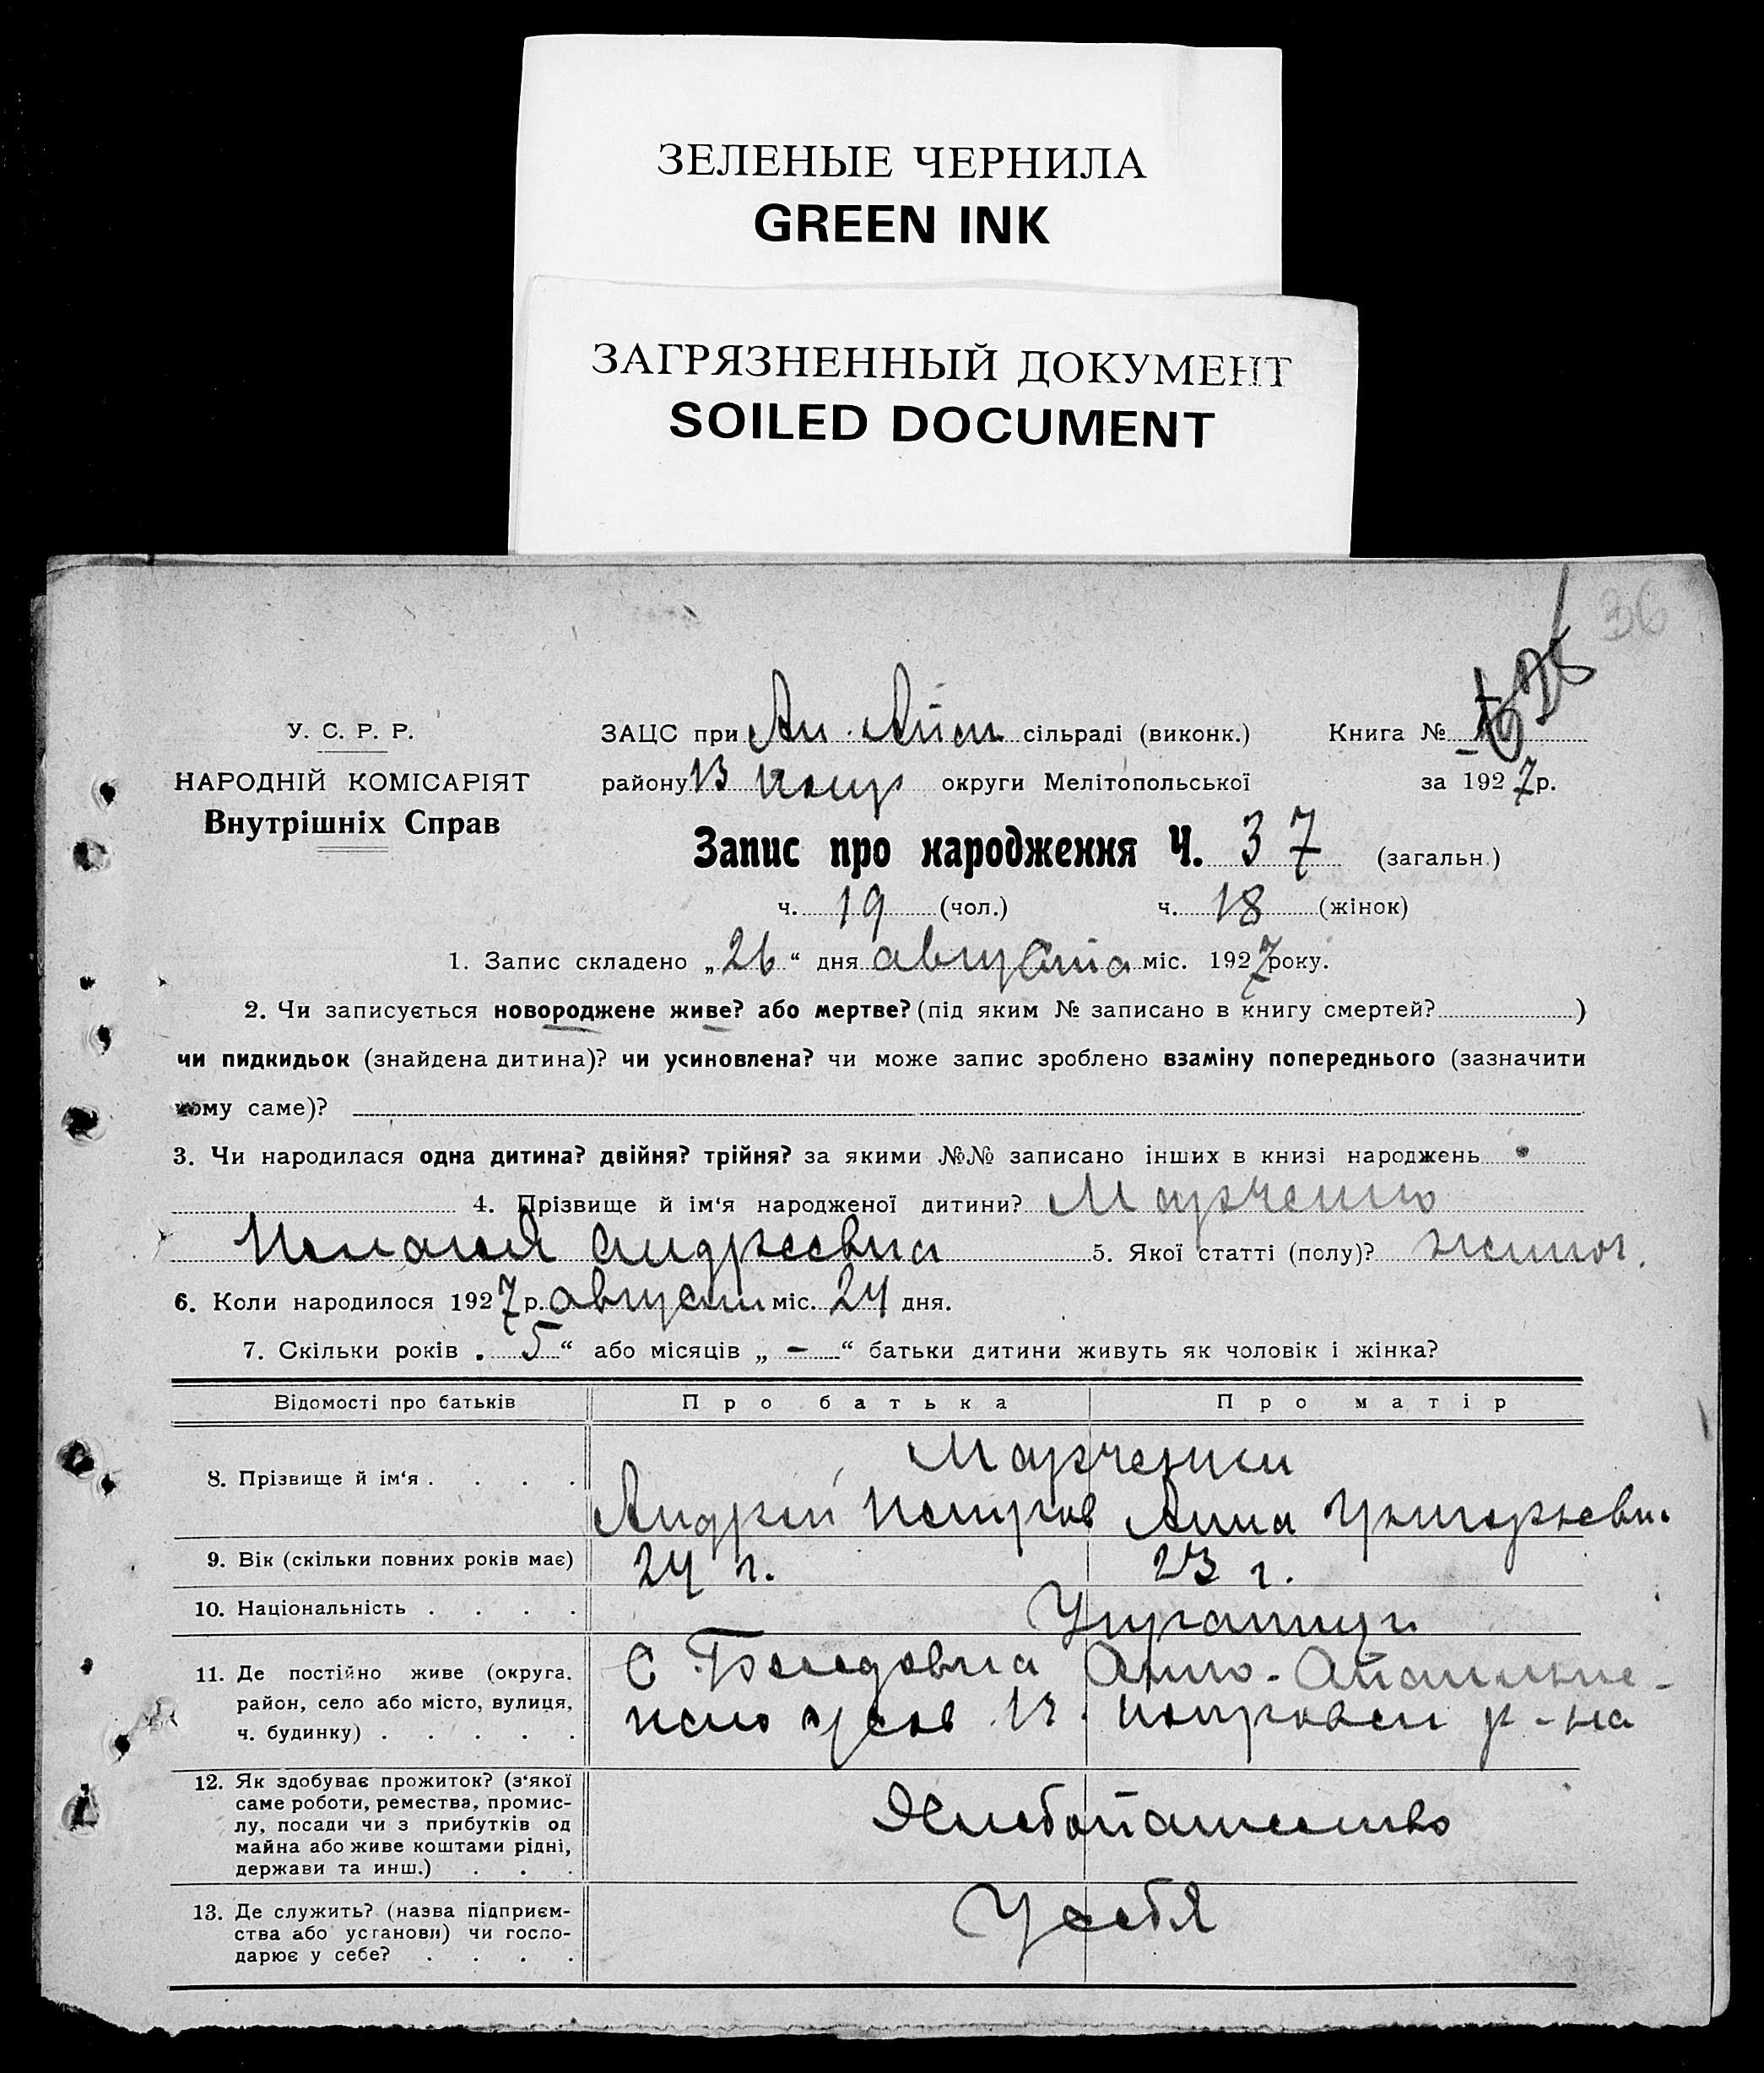 ЗЕЛЕНЫЕ ЧЕРНИЛА
GREEN INK
ЗАГРЯЗНЕННЫЙ ДОКУМЕНТ
SOILED DOCUMENT
36
У. С. Р. Р.
НАРОДНІЙ КОМІСАРІЯТ
Внутрішніх Справ
ЗАЦС при сільраді (виконк.) Книга №
району округи Мелітопольської за 1927 р.
Запис про народження Ч. 37 (загальн.)
ч. 19 (чол.) ч. 18 (жінок)
1. Запис складено „26“ дня августа міс. 1927 року.
2. Чи записується новороджене живе? або мертве? (під яким № записано в книгу смертей? )
чи пидкидьок (знайдена дитина)? чи усиновлена? чи може запис зроблено взаміну попереднього (зазначити
кому саме)?
3. Чи народилася одна дитина? двійня? трійня? за якими №№ записано інших в книзі народжень
4. Прізвище й ім'я народженої дитини? Марченко
Андреевна 5. Якої статті (полу)?
6. Коли народилося 1927 р. август міс. 24 дня.
7. Скільки років „5“ або місяців „ — “ батьки дитини живуть як чоловік і жінка?
Відомості про батьків Про батька Про матір
Марченки
8. Прізвище й ім'я . . . .
Андрей Петров Анна Григорьевн
9. Вік (скільки повних років має) 24 г. 23 г.
10. Національність . . . .
11. Де постійно живе (округа, район, село або місто, вулиця, ч. будинку) . . . . .
р-на
12. Як здобуває прожиток? (з'якої
саме роботи, ремества, промис-
лу, посади чи з прибутків од
майна або живе коштами рідні,
держави та инш.) . . .
Хлебопашество
13. Де служить? (назва підприєм-
ства або установи) чи госпо-
дарює у себе? . . . .
У себя